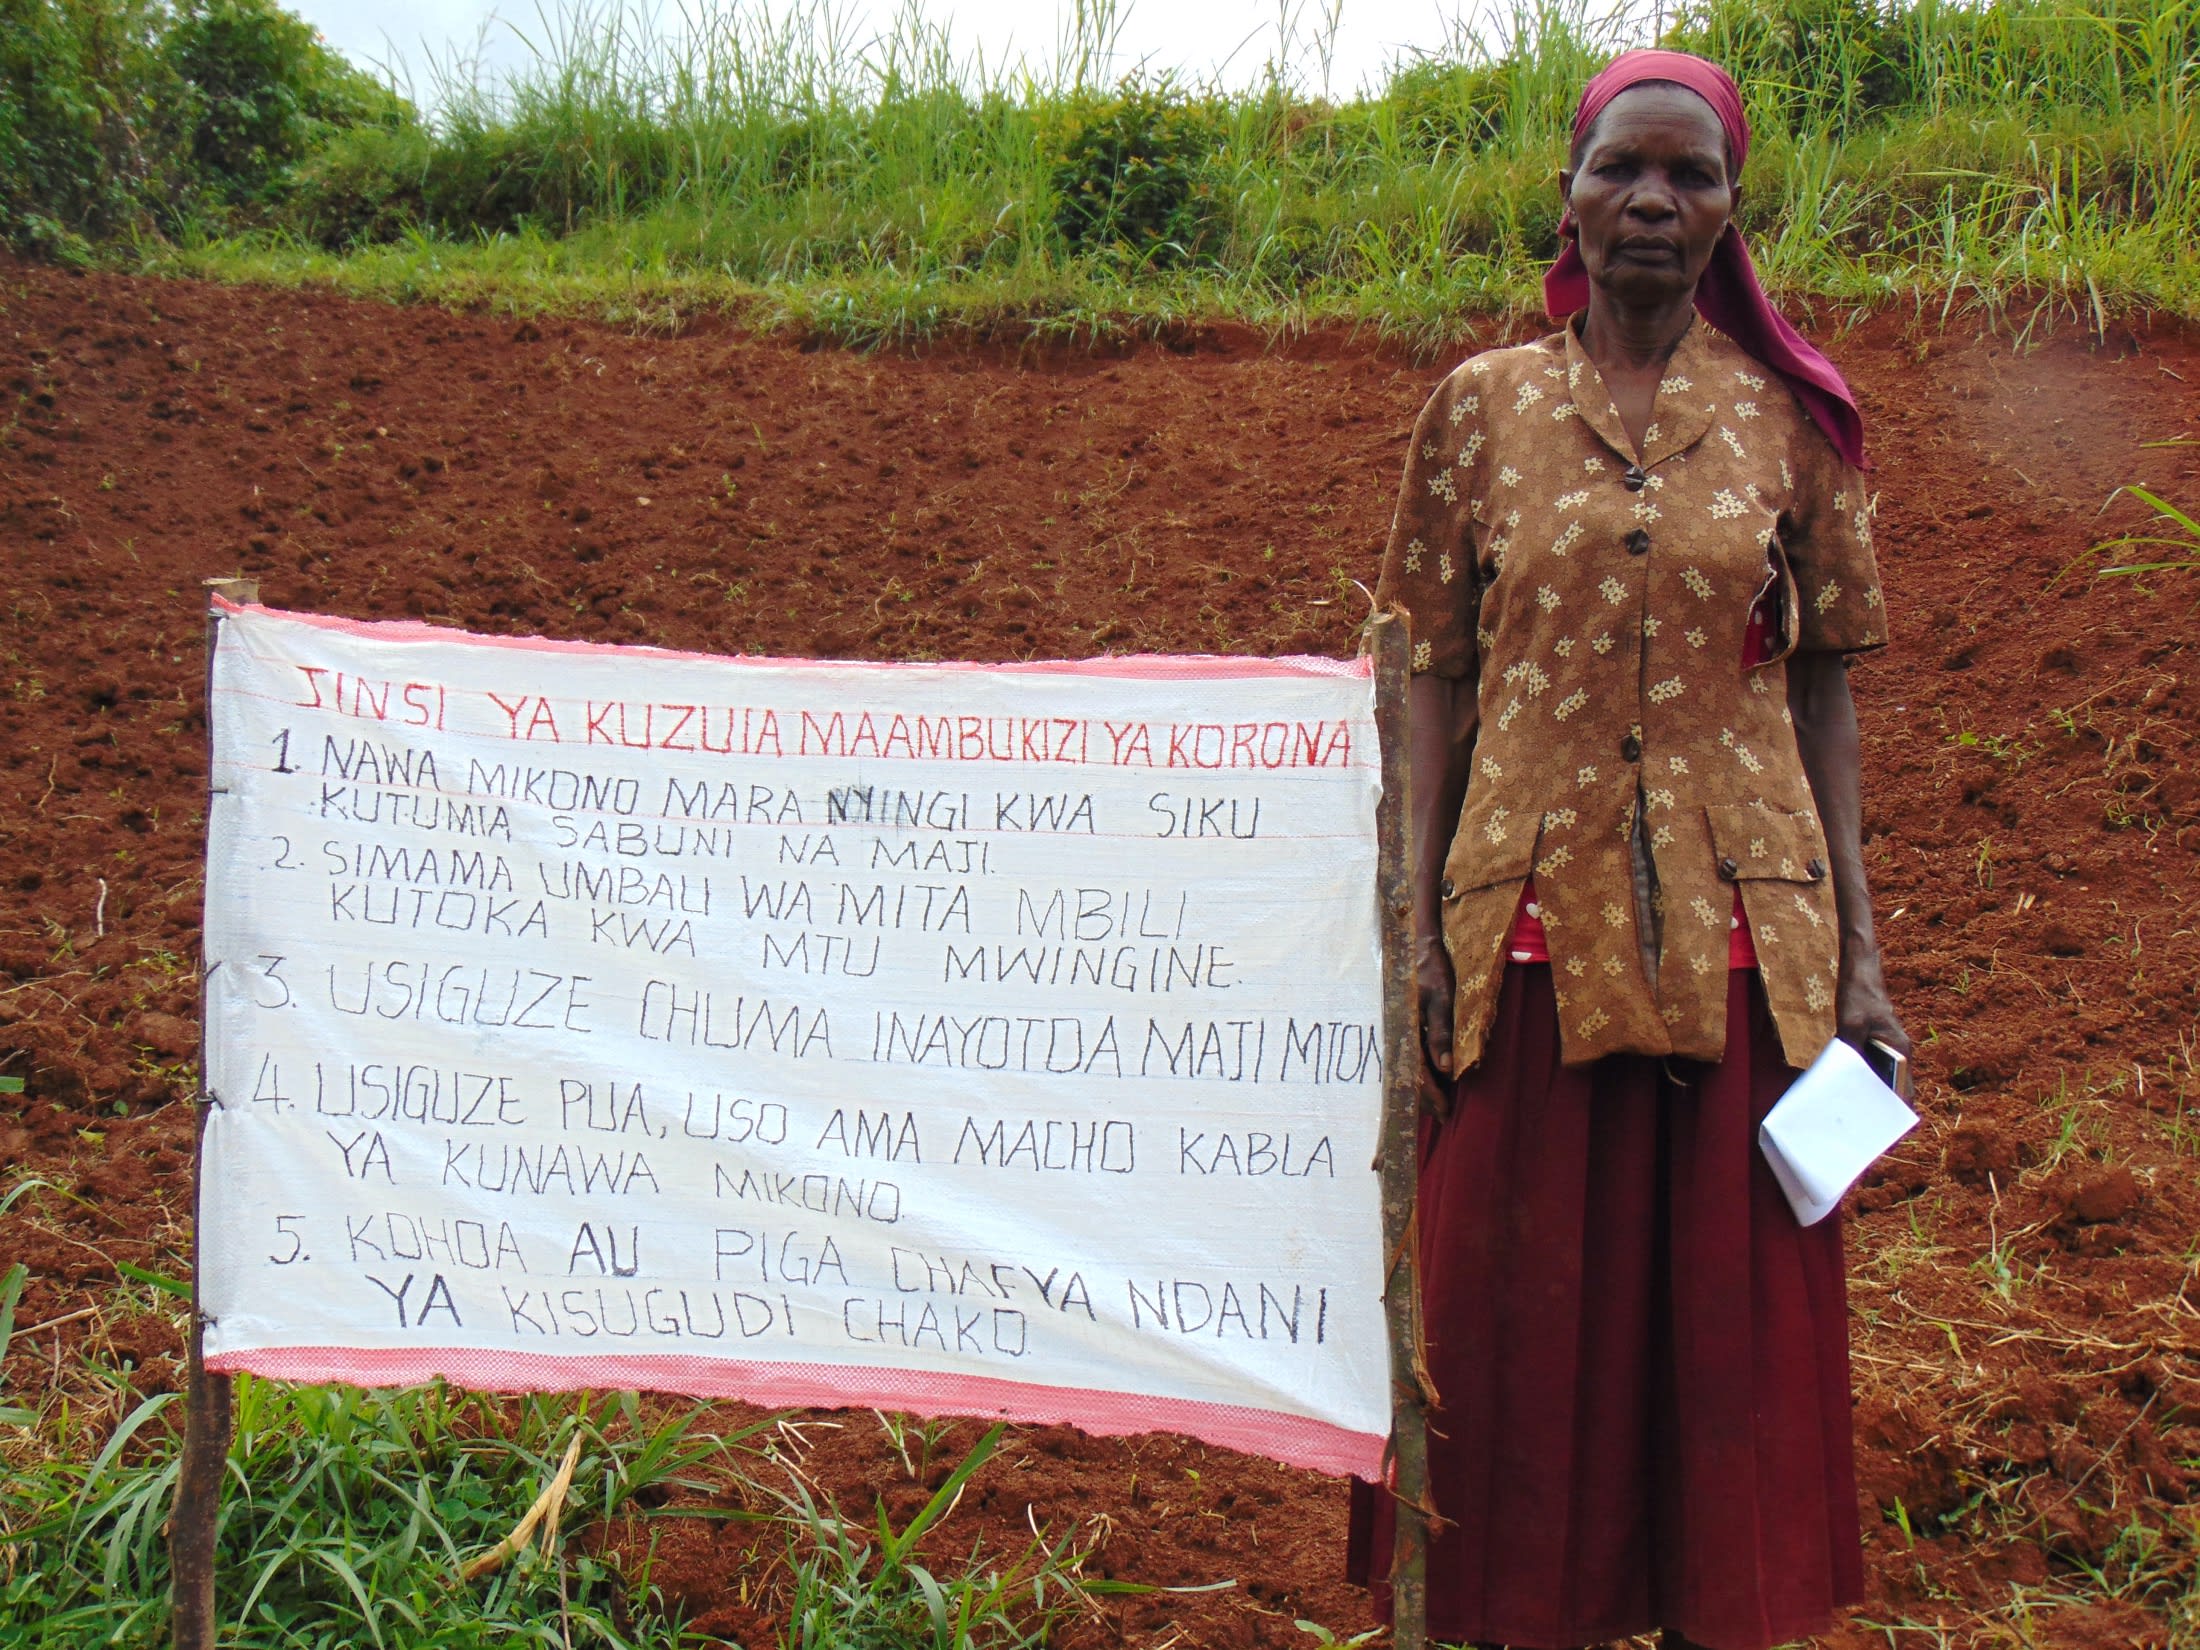 JINSI YA KUZUIA MAAMBUKIZI YA KORONA
1. NAWA MIKONO MARA NYINGI KWA SIKU
KUTUMIA SABUNI NA MAJI.
2. SIMAMA UMBALI WA MITA MBILI
KUTOKA KWA MTU MWINGINE.
3. USIGUZE CHUMA INAYOTOA MAJI MTON
4. USIGUZE PUA, USO AMA MACHO KABLA
YA KUNAWA MIKONO.
5. KOHOA AU PIGA CHAFYA NDANI
YA KISUGUDI CHAKO.